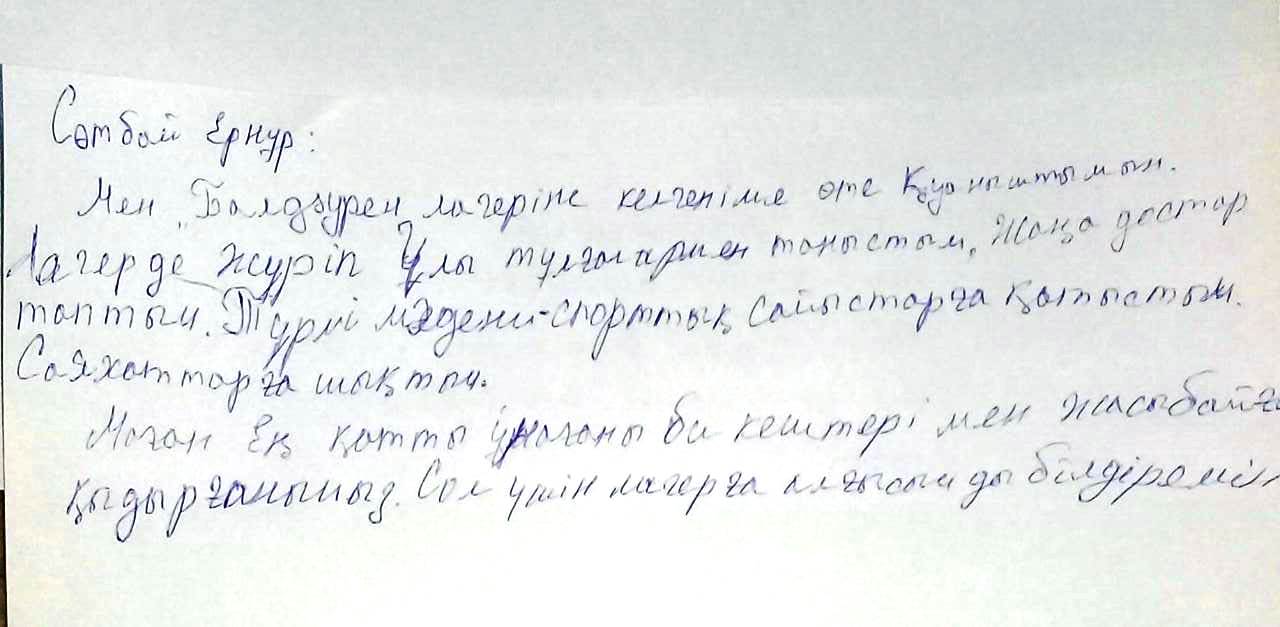 Сәтбай Ернұр:
Мен "Балдәурен лагеріне келгеніме өте қуаныштымын.
Лагерде жүріп Ұлы тұлғалармен таныстым, Жаңа достар
таптым. Түрлі мәдени-спорттық сайыстарға қатыстым.
Саяхаттарға шықтым.
Маған Ең қатты ұнағаны би кештері мен жасыбайға
қыдырғанымыз. Сол үшін лагерға алғысымды білдіремін